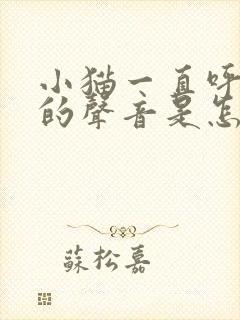 小猫一直呼
的聲音是怎
蘇松嘉